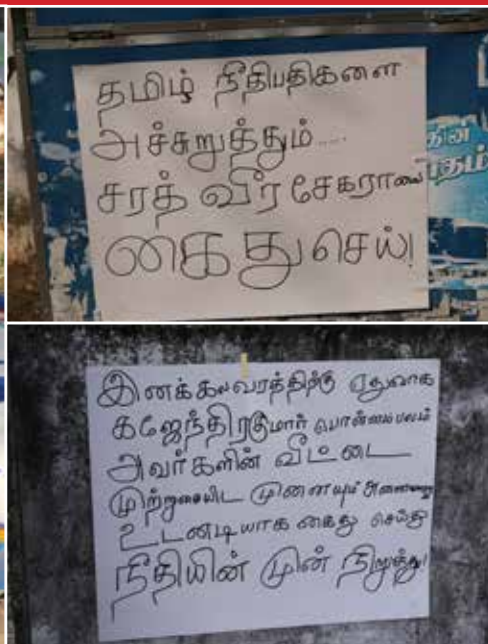 தமிழ் நீதிபதிகளை
அச்சுறுத்தும்....
சரத் வீரசேகராவை
கைது செய்!
தின்
இனக்கலவரத்திற்கு ஏதுவாக
கஜேந்திரகுமார் பொன்னம்பலம்
அவர்களின் வீட்டை
முற்றுகையிட முனையும் அனைவரையும்
உடனடியாக கைது செய்து
நீதியின் முன் நிறுத்து!